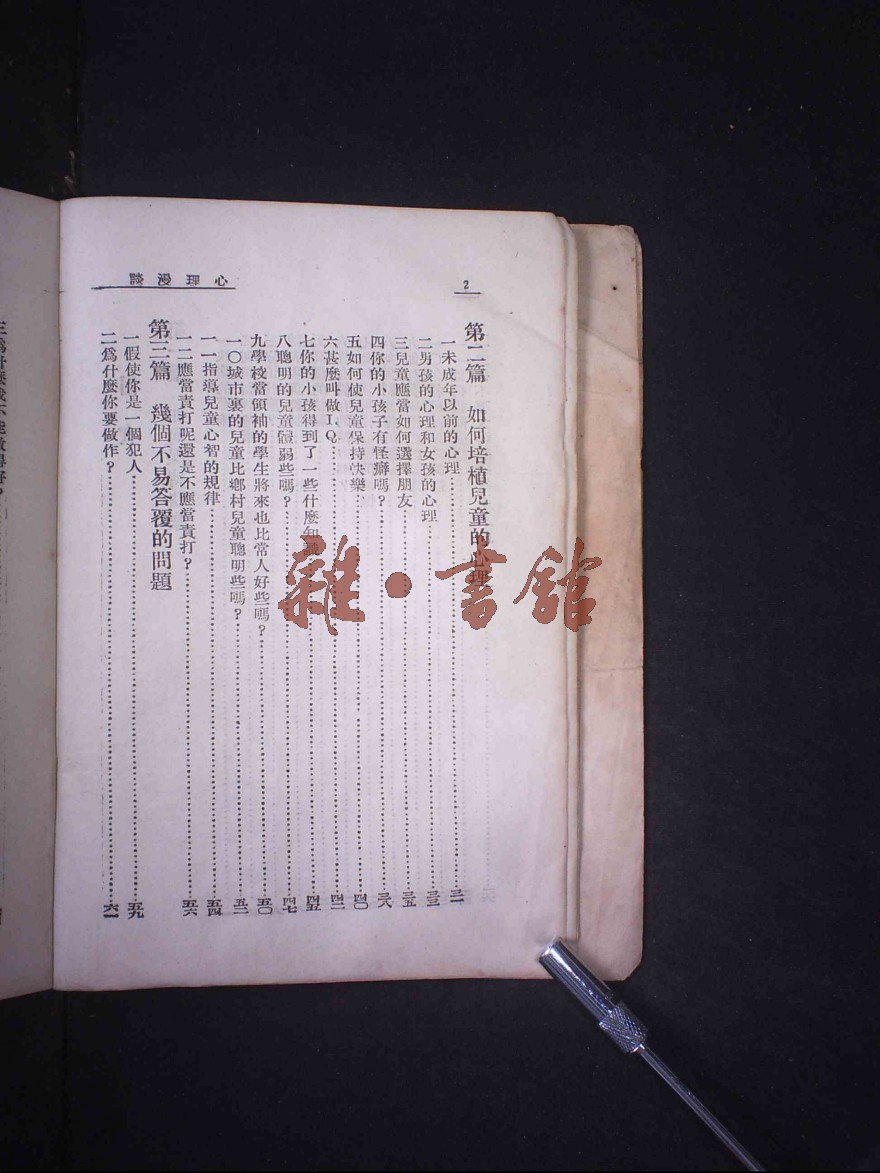 心理漫談
2
第二篇 如何培植兒童的心理
一未成年以前的心理……三一
二男孩的心理和女孩的心理……三三
三兒童應當如何選擇朋友……三五
四你的小孩子有怪癖嗎？……三八
五如何使兒童保持快樂……四〇
六甚麼叫做I.Q.……四二
七你的小孩得到了一些什麼知識……四五
八聰明的兒童體弱些嗎？……四七
九學校當領袖的學生將來也比常人好些嗎？……五〇
一〇城市裏的兒童比鄉村兒童聰明些嗎？……五二
一一指導兒童心智的規律……五四
一二應當責打呢還是不應當責打？……五六
第三篇 幾個不易答覆的問題
一假使你是一個犯人……五九
二爲什麼你要做作？……六一
雜·書館